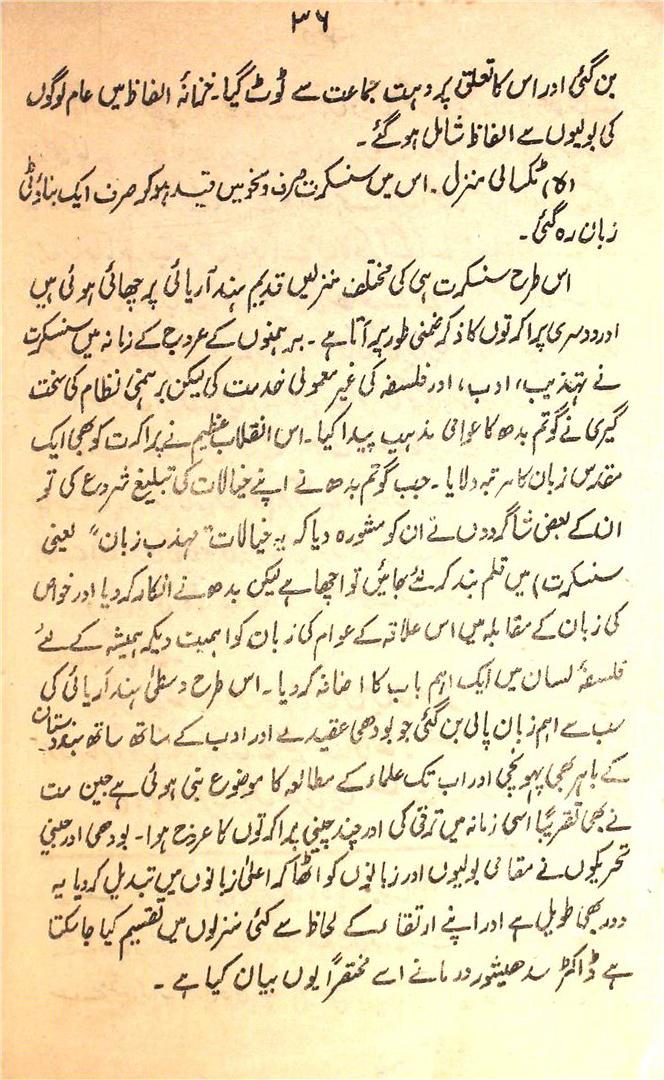 ۳۶
بن گئی اور اس کا تعلق پروہت جماعت سے ٹوٹ گیا۔ خزانۂ الفاظ میں عام لوگوں
کی بولیوں سے الفاظ شامل ہو گئے۔
ٹکسالی منزل۔ اس میں سنسکرت صرف و نحو میں قید ہو کر صرف ایک بناوٹی
زبان رہ گئی۔
اس طرح سنسکرت ہی کی مختلف منزلیں قدیم ہند آریائی پر چھائی ہوئی ہیں
اور دوسری پراکرتوں کا ذکر ضمنی طور پر آتا ہے۔ برہمنوں کے عروج کے زمانہ میں سنسکرت
نے تہذیب، ادب، اور فلسفہ کی غیر معمولی خدمت کی لیکن برہمنی نظام کی سخت
گیری نے گوتم بدھ کا عوامی مذہب پیدا کیا۔ اس انقلاب عظیم نے پراکرت کو بھی ایک
مقدس زبان کا مرتبہ دلایا۔ جب گوتم بدھ نے اپنے خیالات کی تبلیغ شروع کی تو
ان کے بعض شاگردوں نے ان کو مشورہ دیا کہ یہ خیالات "مہذب زبان" یعنی
سنسکرت) میں قلم بند کر لئے جائیں تو اچھا ہے لیکن بدھ نے انکار کر دیا اور خواص
کی زبان کے مقابلہ میں اس علاقہ کے عوام کی زبان کو اہمیت دیکر ہمیشہ کے لئے
فلسفۂ لسان میں ایک اہم باب کا اضافہ کر دیا۔ اس طرح وسطی ہند آریائی کی
سب سے اہم زبان پالی بن گئی جو بودھی عقیدے اور ادب کے ساتھ ساتھ ہندوستان
کے باہر بھی پہونچی اور اب تک علماء کے مطالعہ کا موضوع بنی ہوئی ہے جین مت
نے بھی تقریباً اسی زمانہ میں ترقی کی اور چند جینی پراکرتوں کا عروج ہوا۔ بودھی اور جینی
تحریکوں نے مقامی بولیوں اور زبانوں کو اٹھا کر اعلیٰ زبانوں میں تبدیل کر دیا یہ
دور بھی طویل ہے اور اپنے ارتقا کے لحاظ سے کئی منزلوں میں تقسیم کیا جا سکتا
ہے ڈاکٹر سدھیشور ورما نے اسے مختصراً یوں بیان کیا ہے۔